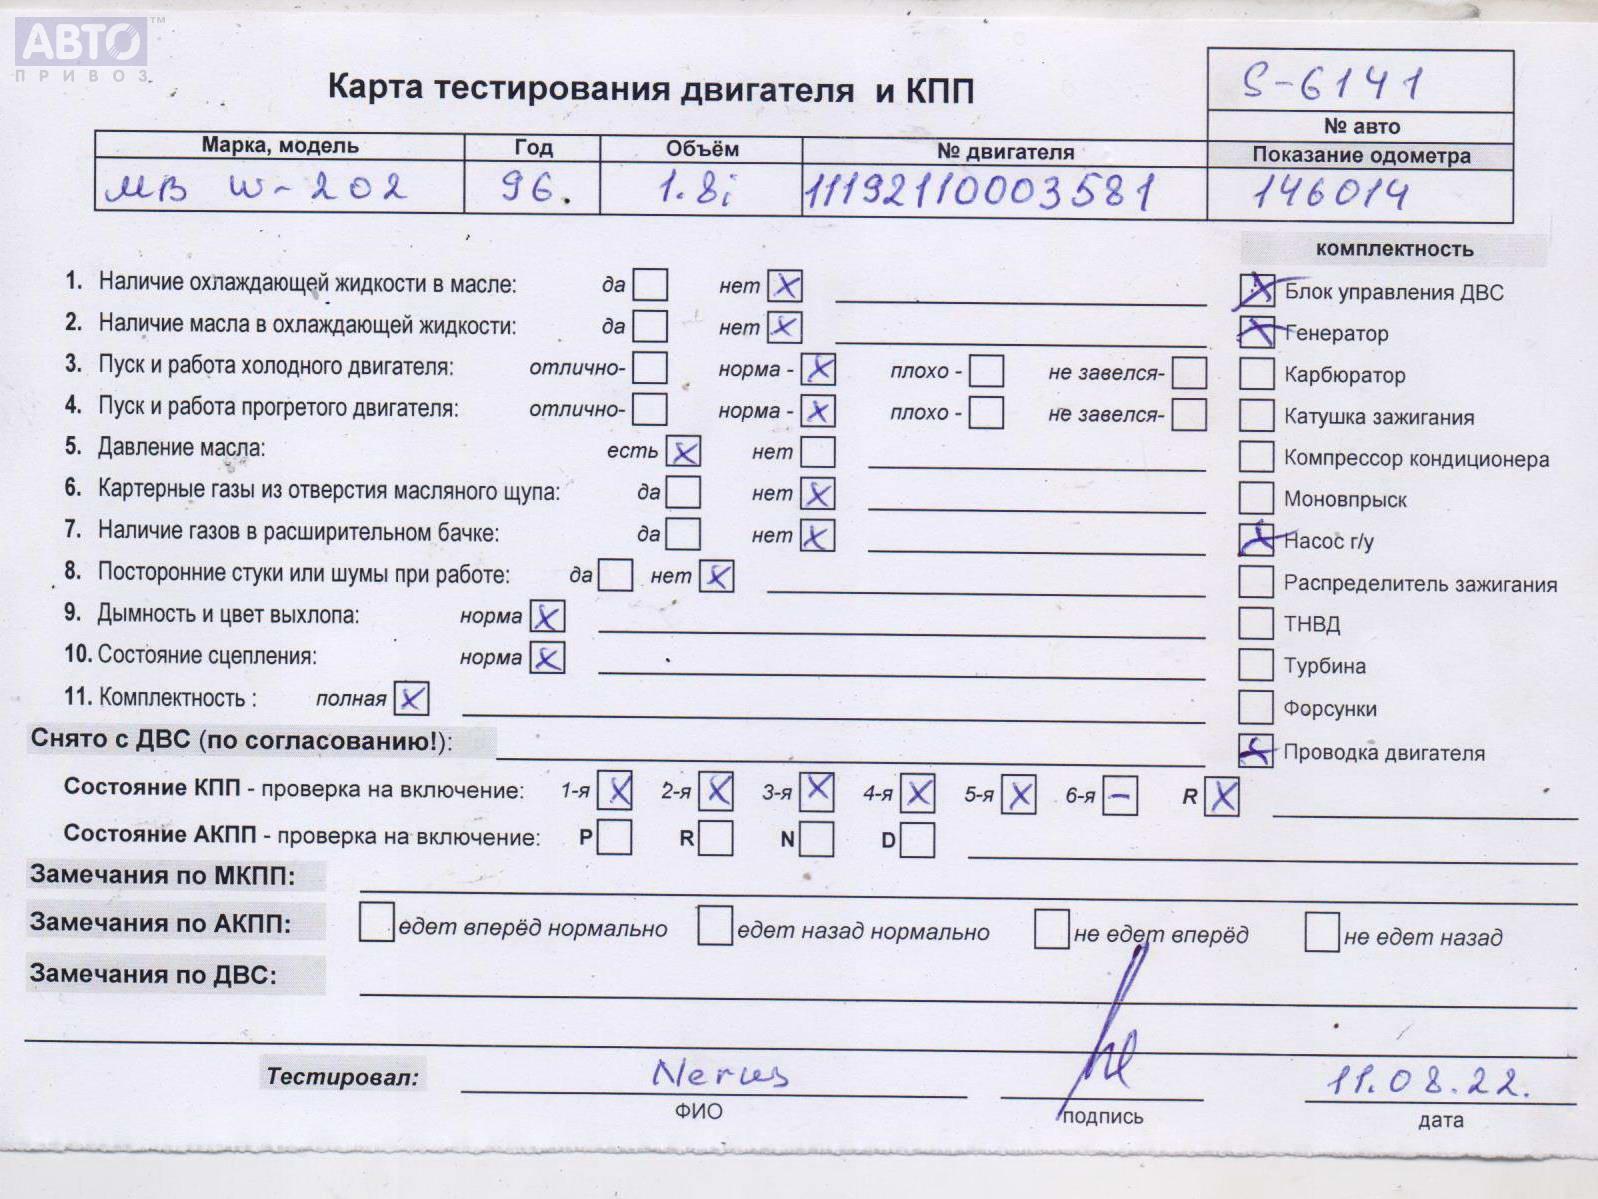 АВТО™
ПРИВОЗ
Карта тестирования двигателя и КПП
S-6141
№ авто
Марка, модель Год Объём № двигателя Показание одометра
МВ W-202 96. 1.8i 11192110003581 146014
комплектность
1. Наличие охлаждающей жидкости в масле: да нет X
2. Наличие масла в охлаждающей жидкости: да нет X
3. Пуск и работа холодного двигателя: отлично- норма - X плохо - не завелся-
4. Пуск и работа прогретого двигателя: отлично- норма - X плохо - не завелся-
5. Давление масла: есть X нет
6. Картерные газы из отверстия масляного щупа: да нет X
7. Наличие газов в расширительном бачке: да нет X
8. Посторонние стуки или шумы при работе: да нет X
9. Дымность и цвет выхлопа: норма X
10. Состояние сцепления: норма X
11. Комплектность : полная X
X Блок управления ДВС
X Генератор
Карбюратор
Катушка зажигания
Компрессор кондиционера
Моновпрыск
X Насос г/у
Распределитель зажигания
ТНВД
Турбина
Форсунки
X Проводка двигателя
Снято с ДВС (по согласованию!):
Состояние КПП - проверка на включение: 1-я X 2-я X 3-я X 4-я X 5-я X 6-я – R X
Состояние АКПП - проверка на включение: P R N D
Замечания по МКПП:
Замечания по АКПП: едет вперёд нормально едет назад нормально не едет вперёд не едет назад
Замечания по ДВС:
Тестировал: 11.08.22.
ФИО подпись дата